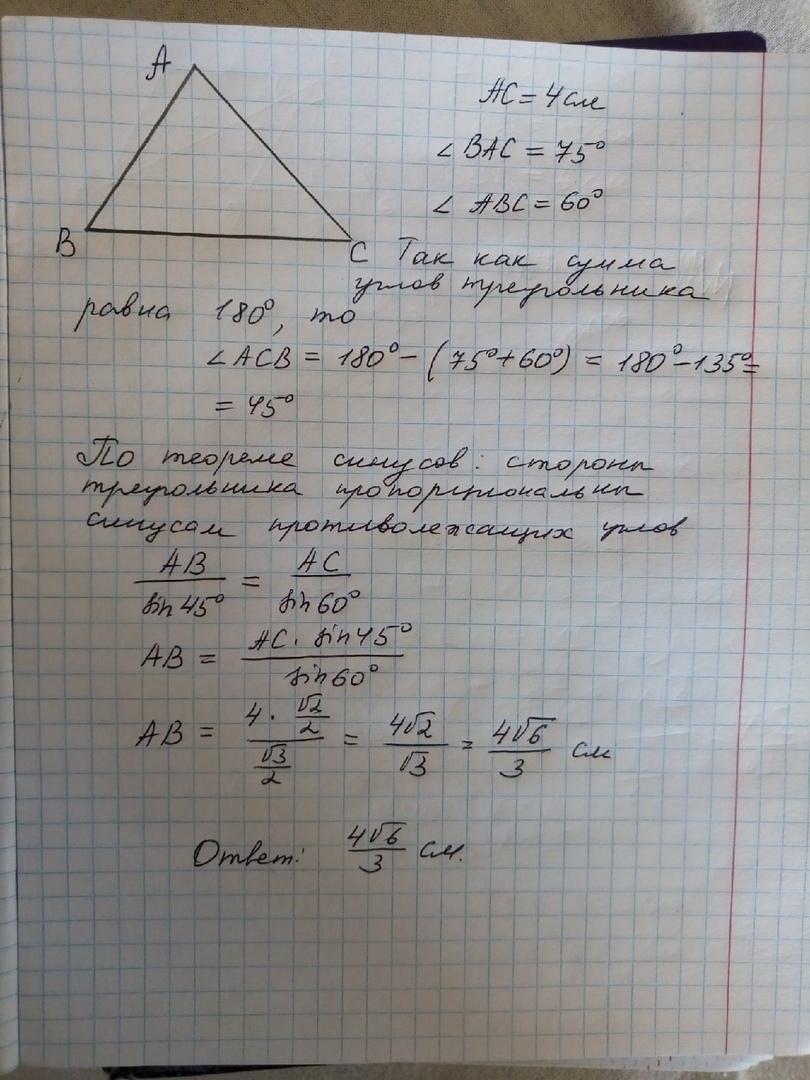 A
B
C
AC = 4 см
∠ BAC = 75°
∠ ABC = 60°
Так как сумма
углов треугольника
равна 180°, то
∠ACB = 180° - (75°+60°) = 180° - 135° =
= 45°
По теореме синусов: стороны
треугольника пропорциональны
синусам противолежащих углов
AB/sin45° = AC/sin60°
AB = AC · sin45°/sin60°
AB = (4 · √2/2)/(√3/2) = 4√2/√3 = 4√6/3 см
Ответ: 4√6/3 см.